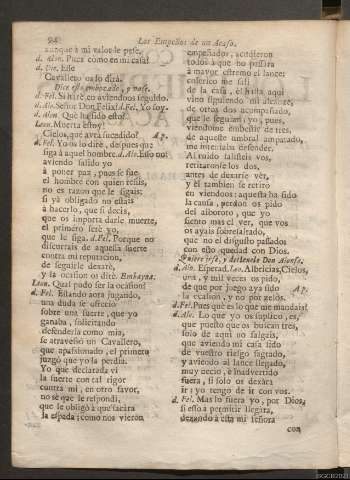 94
Los Empeños de un Acaso.
aunque à mi valor le pese,
d. Alon. Pues como en mi casa?
d. Die. Esse
Cavallero os lo dirà.
Dice esto embozado, y vase.
d. Fel. Si harè, en aviendoos seguido.
d. Alo. Señor Don Felix? d. Fel. Yo soy.
d. Alon. Què ha sido esto?
Leon. Muerta estoy!
Cielos, què avrà sucedido? Ap.
d. Fel. Yo os lo dirè, despues que
siga à aquel hombre. d. Alo. Esso no:
aviendo salido yo
à poner paz, pues se fue
el hombre con quien reñis,
no es razon que le sigais:
si yà obligado no estais
à hacerlo, que si decis,
que os importa darle muerte,
el primero serè yo,
que le siga. d. Fel. Porque no
discurrais de aquella suerte
contra mi reputacion,
de seguirle dexarè,
y la ocasion os dirè. Embayna.
Leon. Qual pudo ser la ocasion?
d. Fel. Estando aora jugando,
una duda se ofreciò
sobre una suerte, que yo
ganaba, solicitando
defenderla como mia,
se atravesò un Cavallero,
que apassionado, el primero
juzgò que yo la perdia.
Yo que declarada vi
la suerte con tal rigor
contra mi, en otro favor,
no sè que le respondi,
que le obligò à que sacàra
la espada; como nos vieron
empeñados, acudieron
todos à que no passàra
à mayor estremo el lance:
de la casa, è hasta aqui
vino siguiendo mi alcance,
de otros dos acompañado,
que le seguian; yo pues,
viendome embestir de tres,
de aqueste umbral amparado,
me intentaba defender.
Al ruido salisteis vos,
retiraronse los dos,
antes de dexarse vèr,
y èl tambien se retirò
en viendoos: aquesta ha sido
la causa, perdon os pido
del alboroto, que yo
siento mas el ver, que vos
os ayais sobresaltado,
que no el disgusto passado
con esto quedad con Dios.
Quiere irse, y detienele Don Alonso.
d. Alo. Esperad. Leo. Albricias, Cielos,
una, y mil veces os pido,
de que por juego aya sido Ap.
la ocasion, y no por zelos.
d. Fel. Pues què es lo que me mandais?
d. Alo. Lo que yo os suplico, es,
que puesto que os buscan tres,
solo de aqui no salgais,
que aviendo mi casa sido
de vuestro riesgo sagrado,
y aviendo al lance llegado,
muy necio, è inadvertido
fuera, si solo os dexàra
ir; yo tengo de ir con vos.
d. Fel. Mas lo fuera yo, por Dios,
si esso à permitir llegàra,
dexando à esta mi señora
con